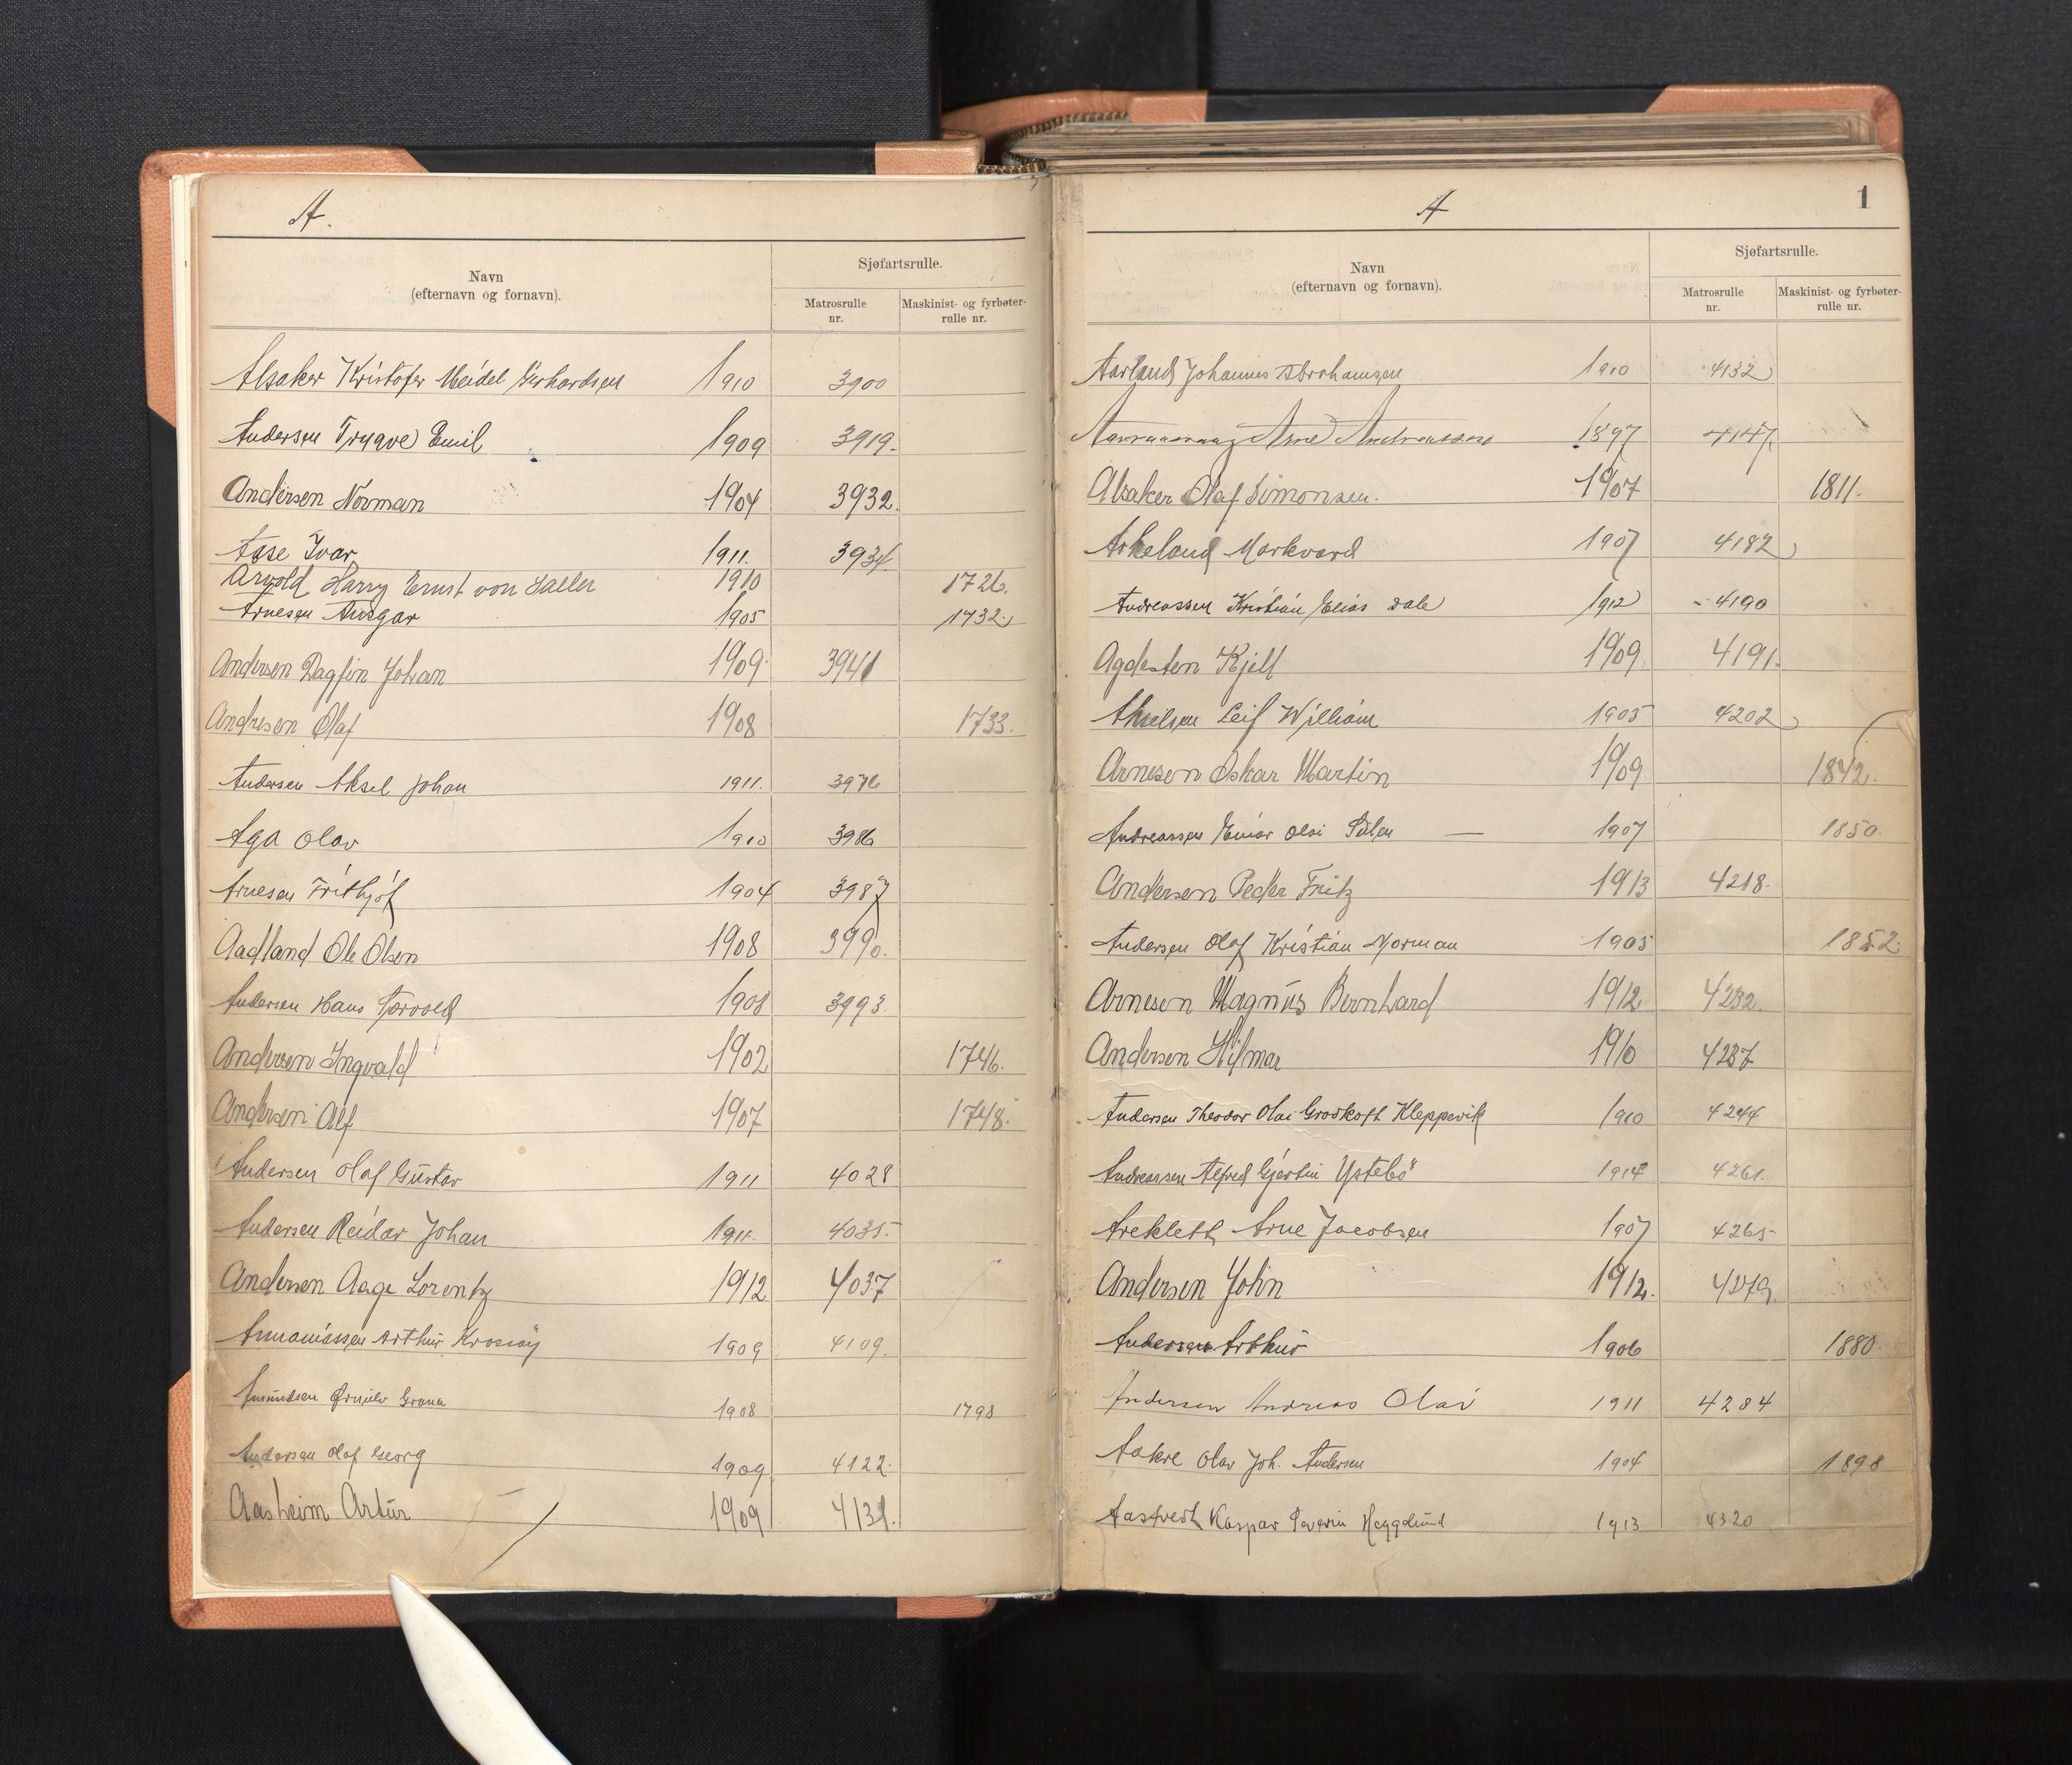 A.
Navn
(efternavn og fornavn).
Sjøfartsrulle.
Matrosrulle
nr.
Maskinist- og fyrbøter-
rulle nr.
Alsaker Kristofer Meidel Gerhardsen 1910 3900
Andersen Trygve Emil 1909 3919.
Andersen Norman 1904 3932.
Aase Ivar 1911. 3934.
Arnold Harry Ernst von Saller 1910 1726.
Arnesen Ansgar 1905 1732.
Andersen Dagfin Johan 1909. 3941
Andresen Olaf 1908 1733.
Andersen Aksel Johan 1911. 3976
Aga Olav 1910 3986
Arnesen Frithjof 1904 3987
Aadland Ole Olsen 1908 3990.
Andersen Hans Torvald 1908 3993.
Andersen Ingvald 1902 1746.
Andersen Alf 1907 1748.
Andersen Olaf Gustav 1911 4028
Andersen Reidar Johan 1911. 4035.
Andersen Aage Lorentz 1912 4037
Arthur Krossøy 1909 4109.
Amundsen Grana 1908 1798
Andersen Olaf Georg 1909 4122.
Aasheim Artur 1909 4131.
A
1
Navn
(efternavn og fornavn).
Sjøfartsrulle.
Matrosrulle
nr.
Maskinist- og fyrbøter-
rulle nr.
Aarland Johannes Abrahamsen 1910 4132
Arne Andreassen 1897 4147.
Alsaker Olaf Simonsen. 1907 1811.
Askeland Markvard 1907 4182
Andreassen Kristian Elias Dale 1912 4190
Agdesten Kjell 1909. 4191.
Akselsen Leif William 1905 4202
Arnesen Oskar Martin 1909 1842.
Andreassen Einar Olai Sulen — 1907 1850.
Andersen Peder Fritz 1913 4218.
Andersen Olaf Kristian Norman 1905 1852.
Arnesen Magnus Bernhard 1912 4232.
Andersen Hilmar 1910 4237
Andersen Theodor Olai Kleppevik 1910 4244
Andreassen Alfred Gjertin Ystebö 1914 4261.
Areklett Arne Jacobsen 1907 4265
Andersen John 1912. 4279.
Andersen Arthur 1906 1880
Andersen Andreas Olai 1911 4284
Aakre Olav Joh. Andersen 1904 1898
Aastvedt Kaspar Severin Heggelund 1913 4320